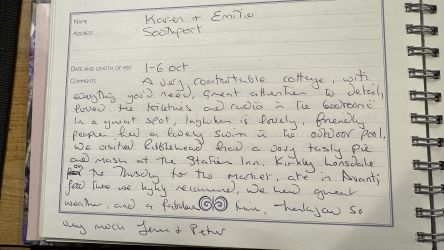 NAME Karen + Emilie
ADDRESS Southport
DATE AND LENGTH OF VISIT 1-6 oct
COMMENTS A very comfortable cottage, with
everything you'd need, great attention to detail,
loved the toiletries and radio in the bathroom.
In a great spot, Ingleton is lovely, friendly
people had a lovely swim in the outdoor pool.
We visited Ribblehead had a very tasty pie
and mash at The Station Inn, Kirkby Lonsdale
on The Thursday for the market, ate in Avanti,
food two we highly recommend, we had great
weather, and a fabulous time, thankyou so
very much Jenn & Peter